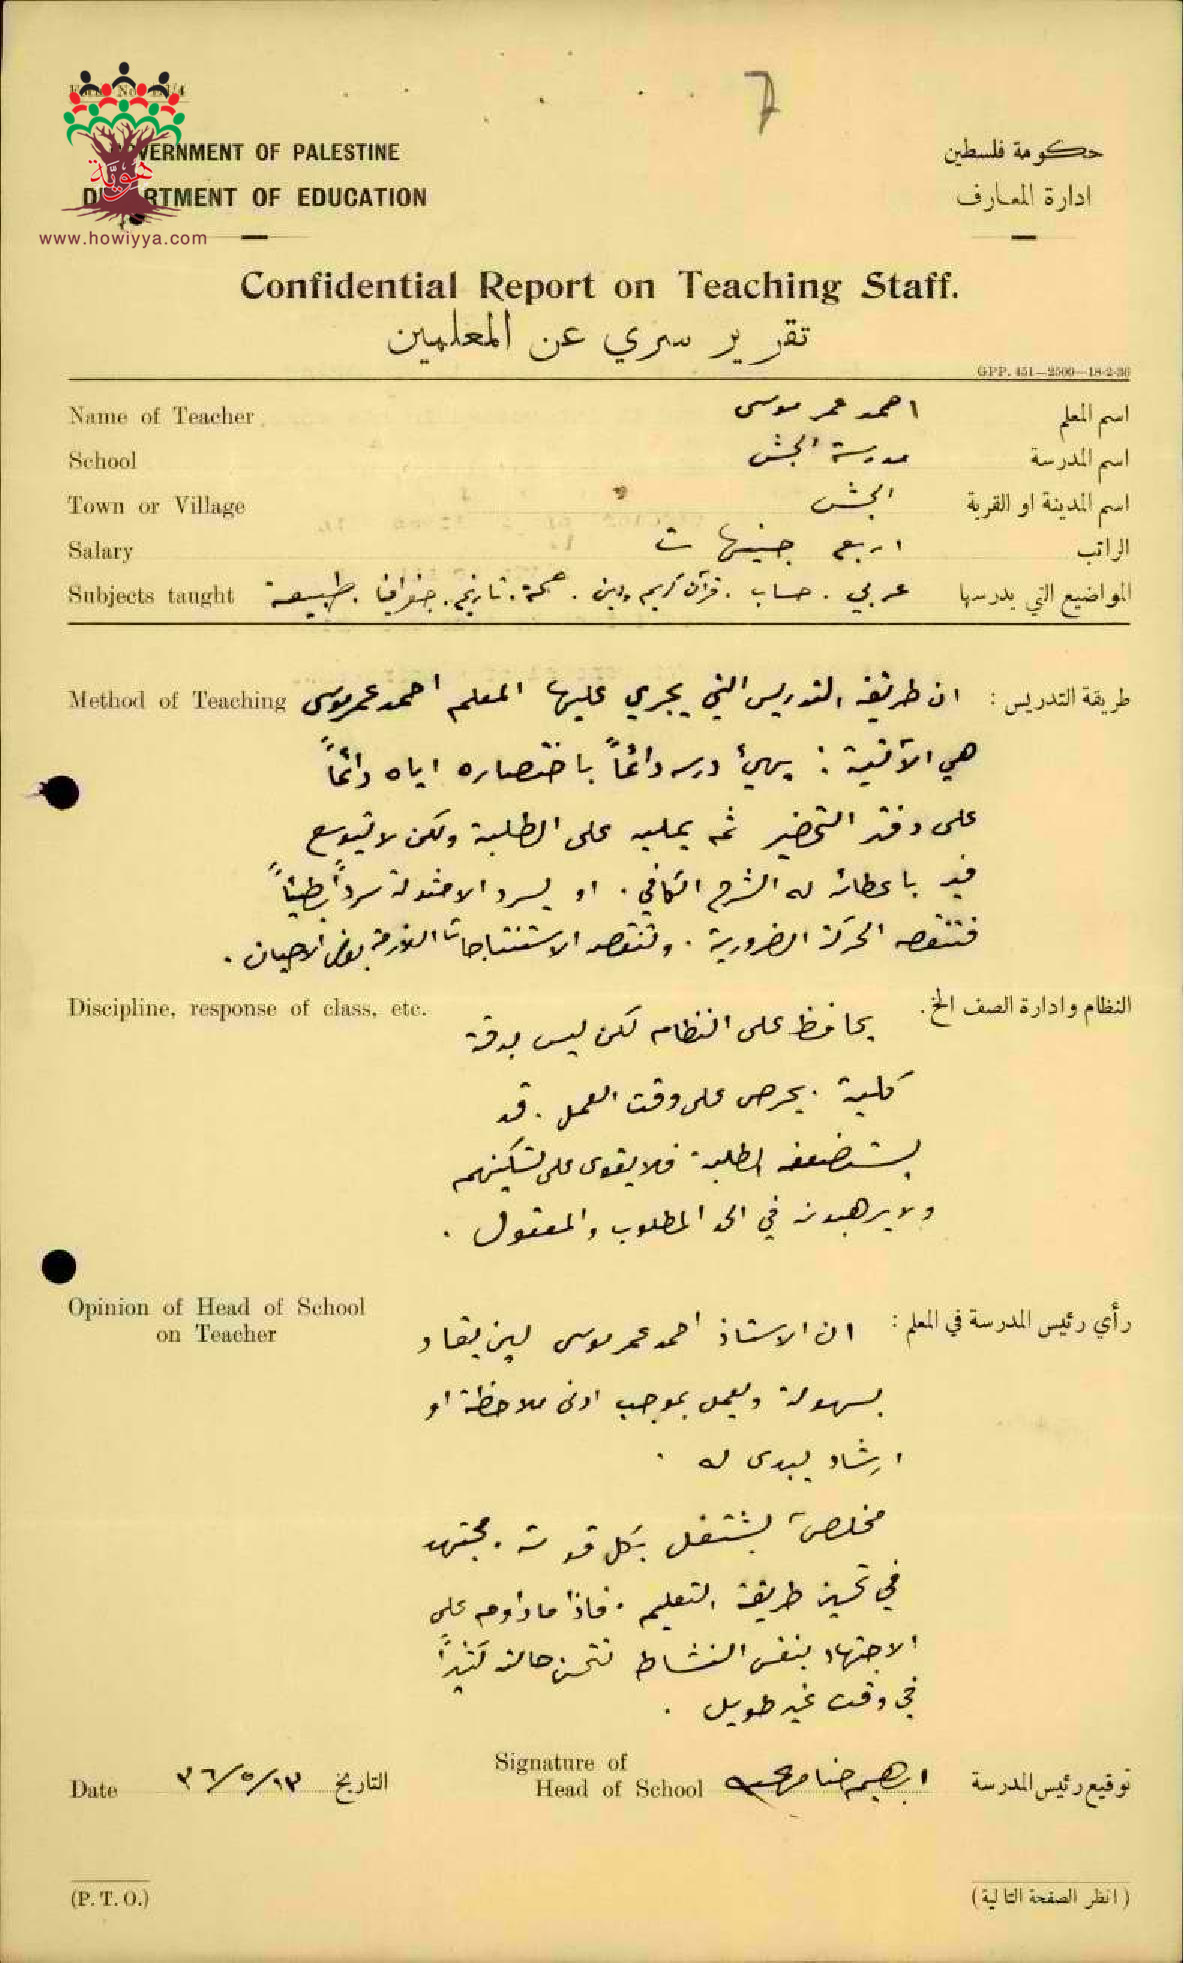 7
GOVERNMENT OF PALESTINE
حكومة فلسطين
DEPARTMENT OF EDUCATION
ادارة المعارف
هوية
www.howiyya.com
Confidential Report on Teaching Staff.
تقرير سري عن المعلمين
GPP. 451—2500—18-2-36
Name of Teacher احمد عمر موسى اسم المعلم
School مدرسة الجش اسم المدرسة
Town or Village الجش اسم المدينة او القرية
Salary اربع جنيهات الراتب
Subjects taught عربي . حساب . قرآن كريم ودين . صحة . تاريخ . جغرافيا . طبيعة المواضيع التي يدرسها
Method of Teaching طريقة التدريس : ان طريقة التدريس التي يجري عليها المعلم احمد عمر موسى
هي الآتية : يهيئ درسه دائماً باختصاره اياه دائماً
على دفتر التحضير ثم يمليه على الطلبة ولكن لا يتوسع
فيه باعطائه له الشرح الكافي . او يسرد الامثولة سرداً بطيئاً
فتنقصه الحركة الضرورية . وتنقصه الاستنتاجات اللازمة بعض الاحيان .
Discipline, response of class, etc. النظام وادارة الصف الخ .
يحافظ على النظام لكن ليس بدقة
كلية . يحرص على وقت العمل . قد
يستضعفه الطلبة فلا يقوى على تسكينهم
ولا يرهبونه في الحد المطلوب والمعقول .
Opinion of Head of School
on Teacher
رأي رئيس المدرسة في المعلم : ان الاستاذ احمد عمر موسى لين يقاد
بسهولة ويعمل بموجب ادنى ملاحظة او
ارشاد يبدى له .
مخلص يشتغل بكل قوته . مجتهد
في تحسين طريقة التعليم . فاذا ما داوم على
الاجتهاد بنفس النشاط تتحسن حالته كثيراً
في وقت غير طويل .
Date ١٣/٥/٣٦ التاريخ
Signature of
Head of School ابرهيم حنا توقيع رئيس المدرسة
(P. T. O.)
(انظر الصفحة التالية)